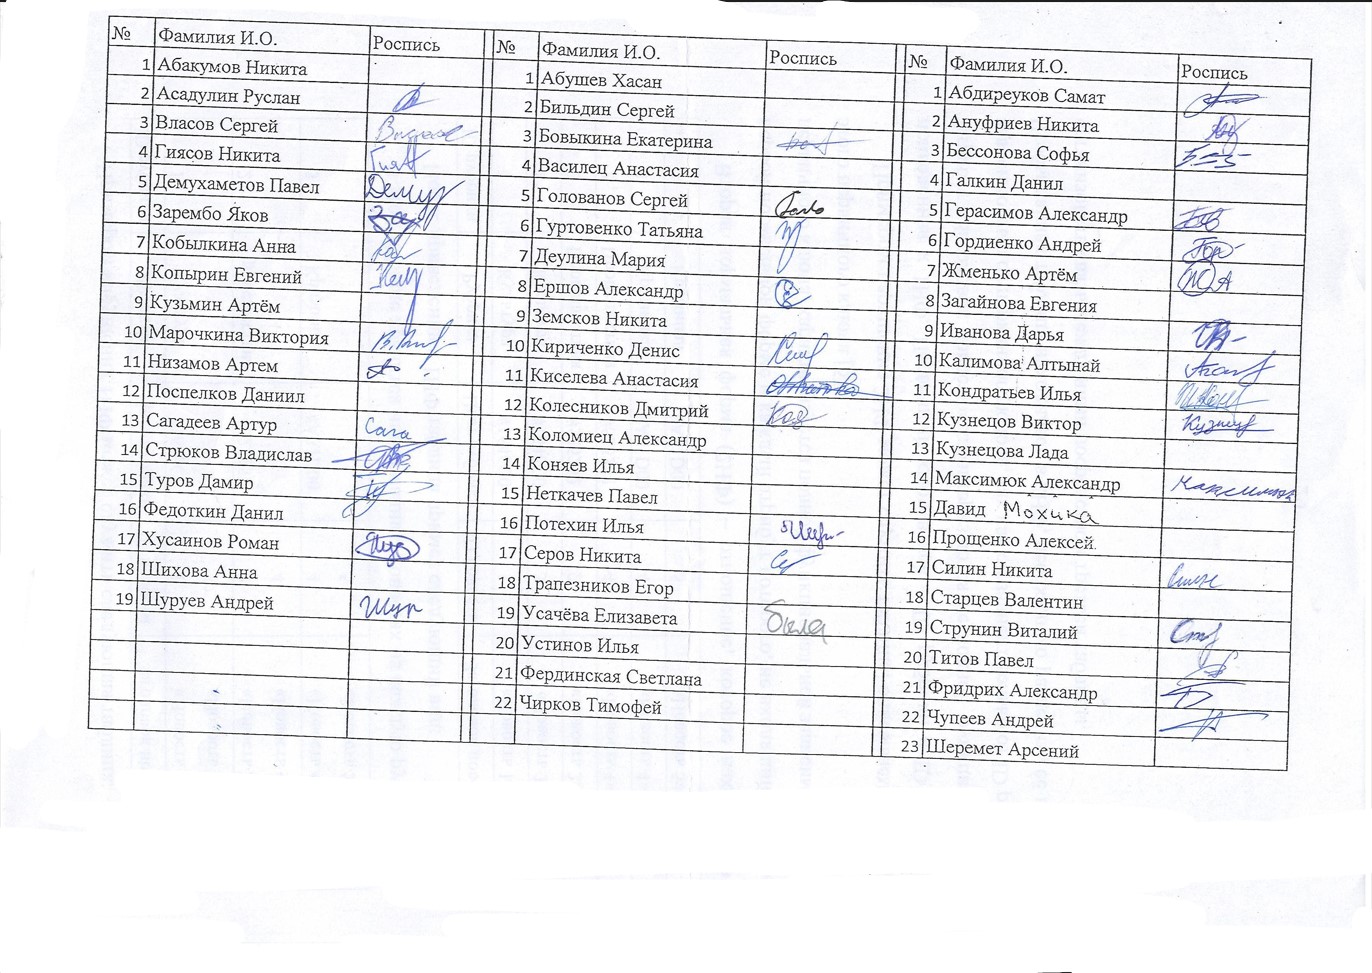 № Фамилия И.О. Роспись
1 Абакумов Никита
2 Асадулин Руслан
3 Власов Сергей
4 Гиясов Никита
5 Демухаметов Павел Демур
6 Зарембо Яков
7 Кобылкина Анна
8 Копырин Евгений
9 Кузьмин Артём
10 Марочкина Виктория
11 Низамов Артем
12 Поспелков Даниил
13 Сагадеев Артур Сага
14 Стрюков Владислав
15 Туров Дамир
16 Федоткин Данил
17 Хусаинов Роман
18 Шихова Анна
19 Шуруев Андрей Шур
№ Фамилия И.О. Роспись
1 Абушев Хасан
2 Бильдин Сергей
3 Бовыкина Екатерина
4 Василец Анастасия
5 Голованов Сергей
6 Гуртовенко Татьяна
7 Деулина Мария
8 Ершов Александр
9 Земсков Никита
10 Кириченко Денис
11 Киселева Анастасия
12 Колесников Дмитрий
13 Коломиец Александр
14 Коняев Илья
15 Неткачев Павел
16 Потехин Илья
17 Серов Никита
18 Трапезников Егор
19 Усачёва Елизавета была
20 Устинов Илья
21 Фердинская Светлана
22 Чирков Тимофей
№ Фамилия И.О. Роспись
1 Абдиреуков Самат
2 Ануфриев Никита
3 Бессонова Софья
4 Галкин Данил
5 Герасимов Александр
6 Гордиенко Андрей
7 Жменько Артём
8 Загайнова Евгения
9 Иванова Дарья
10 Калимова Алтынай
11 Кондратьев Илья
12 Кузнецов Виктор
13 Кузнецова Лада
14 Максимюк Александр
15 Давид Мохика
16 Прощенко Алексей
17 Силин Никита
18 Старцев Валентин
19 Струнин Виталий
20 Титов Павел
21 Фридрих Александр
22 Чупеев Андрей
23 Шеремет Арсений